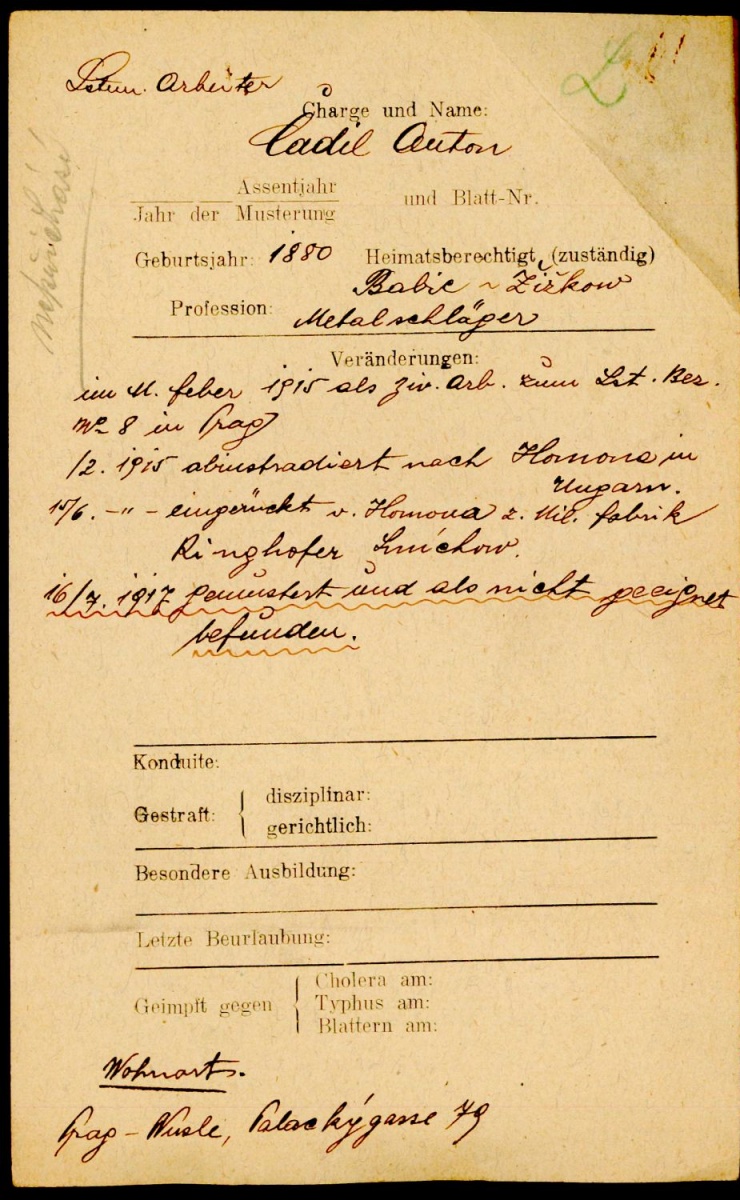 Lstum. Arbeiter
Charge und Name:
Čadil Anton
Assentjahr
Jahr der Musterung
und Blatt-Nr.
Geburtsjahr: 1880 Heimatsberechtigt (zuständig)
Babic ~ Žižkow
Profession: Metalschläger
nepřichází
Veränderungen:
im M. feber 1915 als Ziv. Arb. zum Lst. Bez.
No 8 in Prag
/2. 1915 abinstradiert nach Homona in
Ungarn.
15/6. -"- eingerückt v. Homona z. Mil. fabrik
Ringhofer Smíchow.
16/7. 1917 gemustert und als nicht geeignet
befunden.
Konduite:
Gestraft: { disziplinar:
gerichtlich:
Besondere Ausbildung:
Letzte Beurlaubung:
Geimpft gegen { Cholera am:
Typhus am:
Blattern am:
Wohnort.
Prag - Nusle, Palackýgasse 79